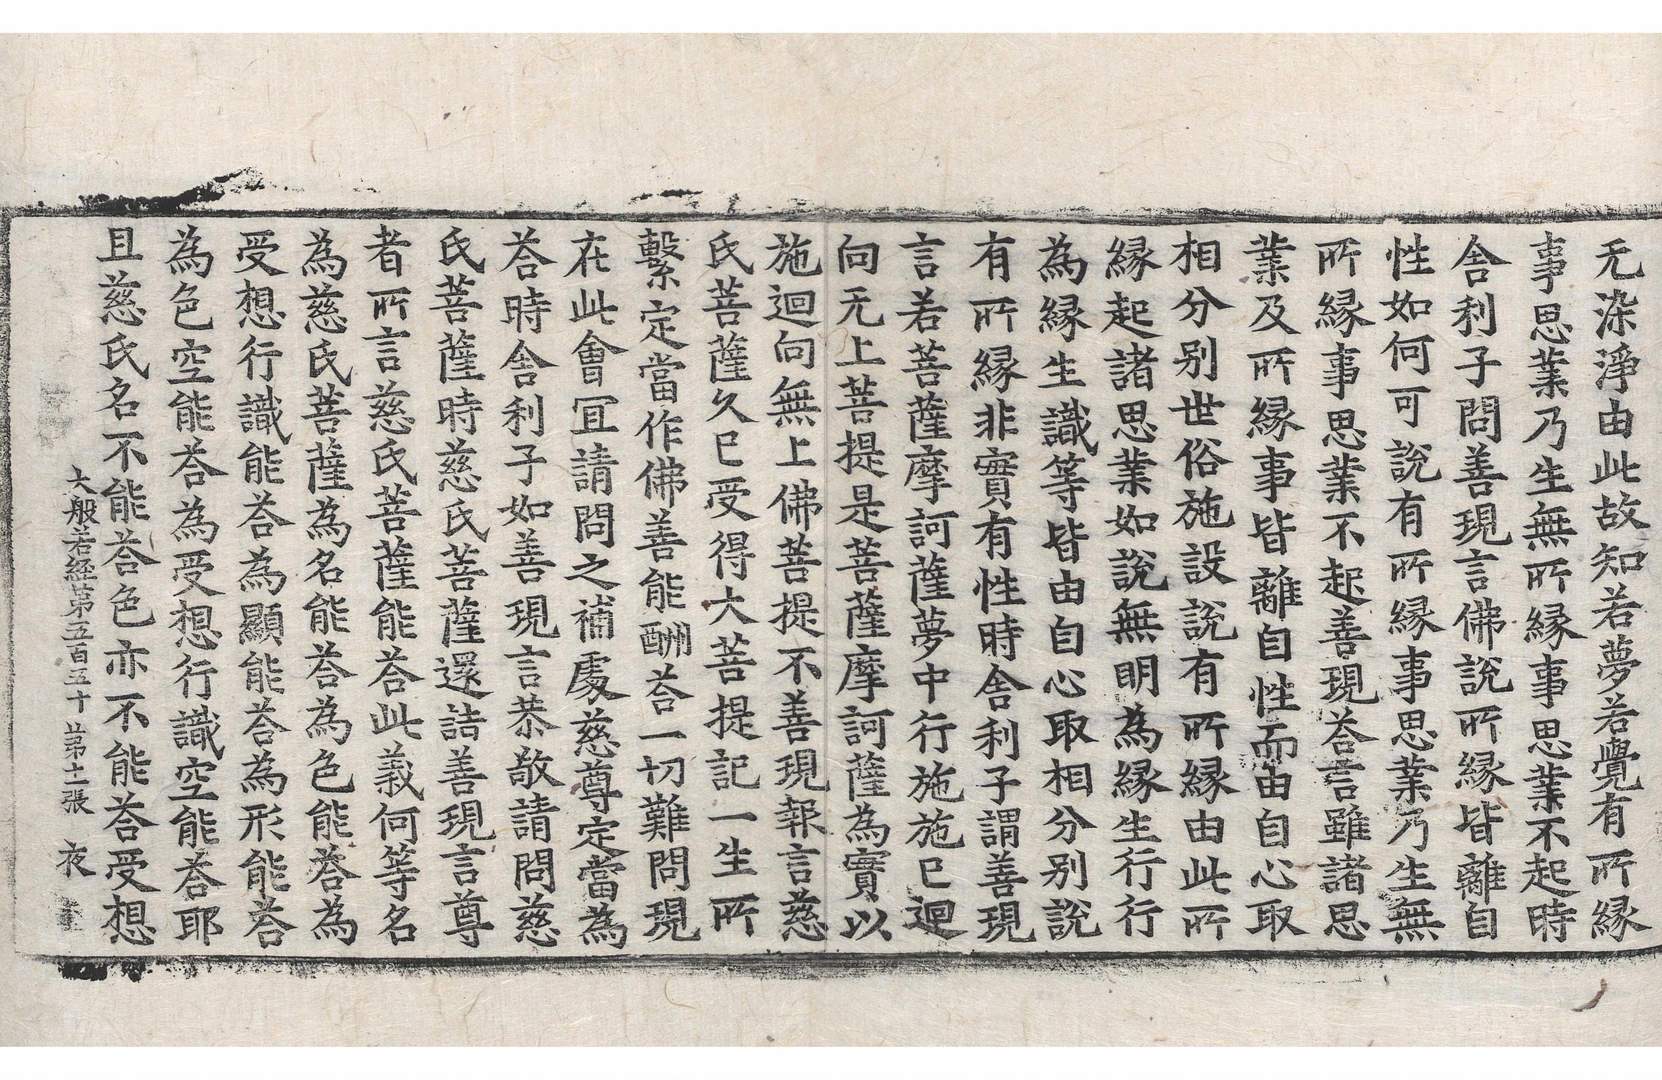 无染淨由此故知若夢若覺有所縁
事思業乃生無所縁事思業不起時
舍利子問善現言佛說所縁皆離自
性如何可說有所縁事思業乃生無
所縁事思業不起善現荅言雖諸思
業及所縁事皆離自性而由自心取
相分别世俗施設說有所縁由此所
縁起諸思業如說無明為縁生行行
為縁生識等皆由自心取相分别說
有所縁非實有性時舍利子謂善現
言若菩薩摩訶薩夢中行施施已迴
向无上菩提是菩薩摩訶薩為實以
施迴向無上佛菩提不善現報言慈
氏菩薩久已受得大菩提記一生所
繫定當作佛善能酬荅一切難問現
在此會冝請問之補處慈尊定當為
荅時舍利子如善現言恭敬請問慈
氏菩薩時慈氏菩薩還詰善現言尊
者所言慈氏菩薩能荅此義何等名
為慈氏菩薩為名能荅為色能荅為
受想行識能荅為顯能荅為形能荅
為色空能荅為受想行識空能荅耶
且慈氏名不能荅色亦不能荅受想
大般若經第五百五十 第十一張 夜